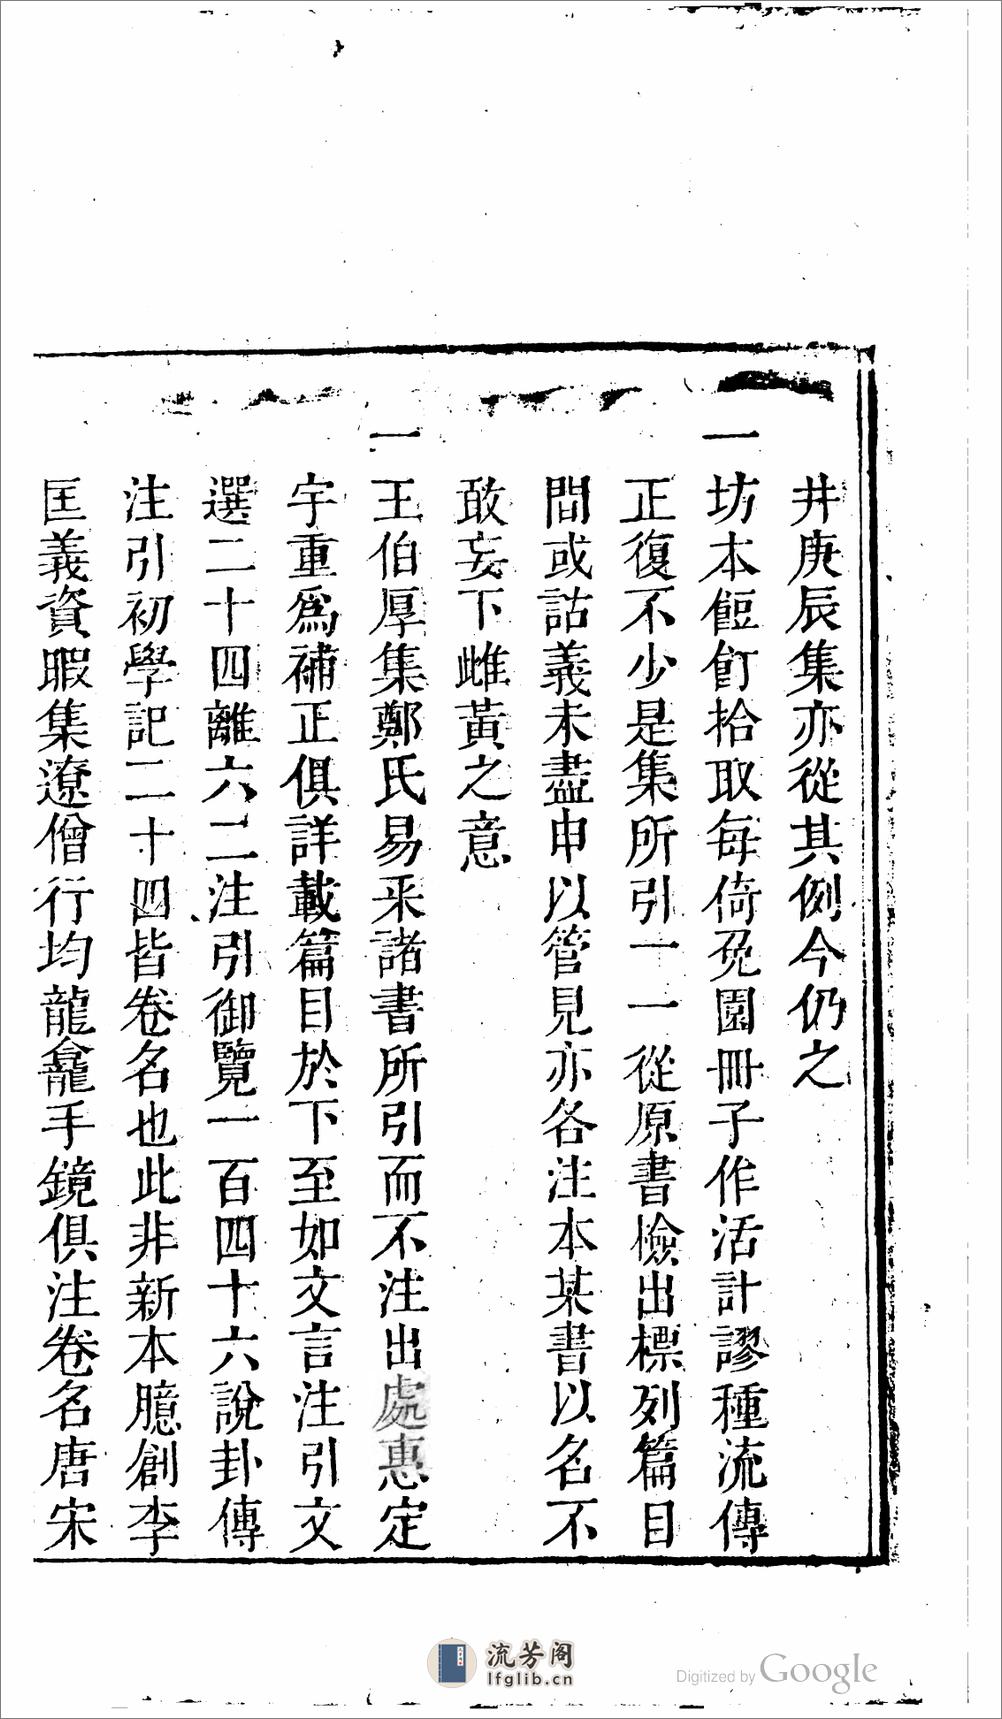 井庚辰集亦從其例今仍之
一坊本餖飣拾取每倚兔園冊子作活計謬種流傳
正復不少是集所引一一從原書檢出標列篇目
間或詁義未盡申以管見亦各注本某書以名不
敢妄下雌黃之意
一王伯厚集鄭氏易采諸書所引而不注出處惠定
宇重爲補正俱詳載篇目於下至如文言注引文
選二十四離六二注引御覽一百四十六說卦傳
注引初學記二十四皆卷名也此非新本臆創李
匡義資暇集遼僧行均龍龕手鏡俱注卷名唐宋
流芳阁
lfglib.cn
Digitized by Google